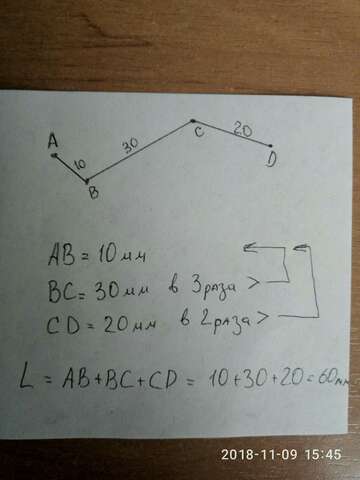 A
10
B
30
C
20
D
AB = 10 мм
BC = 30 мм в 3 раза >
CD = 20 мм в 2 раза >
L = AB + BC + CD = 10 + 30 + 20 = 60 мм
2018-11-09 15:45